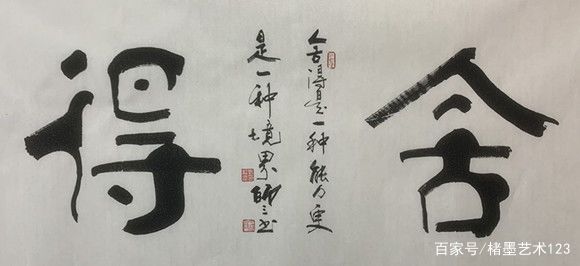 舍得
舍得是一种能力更
是一种境界
百家号/楮墨艺术123